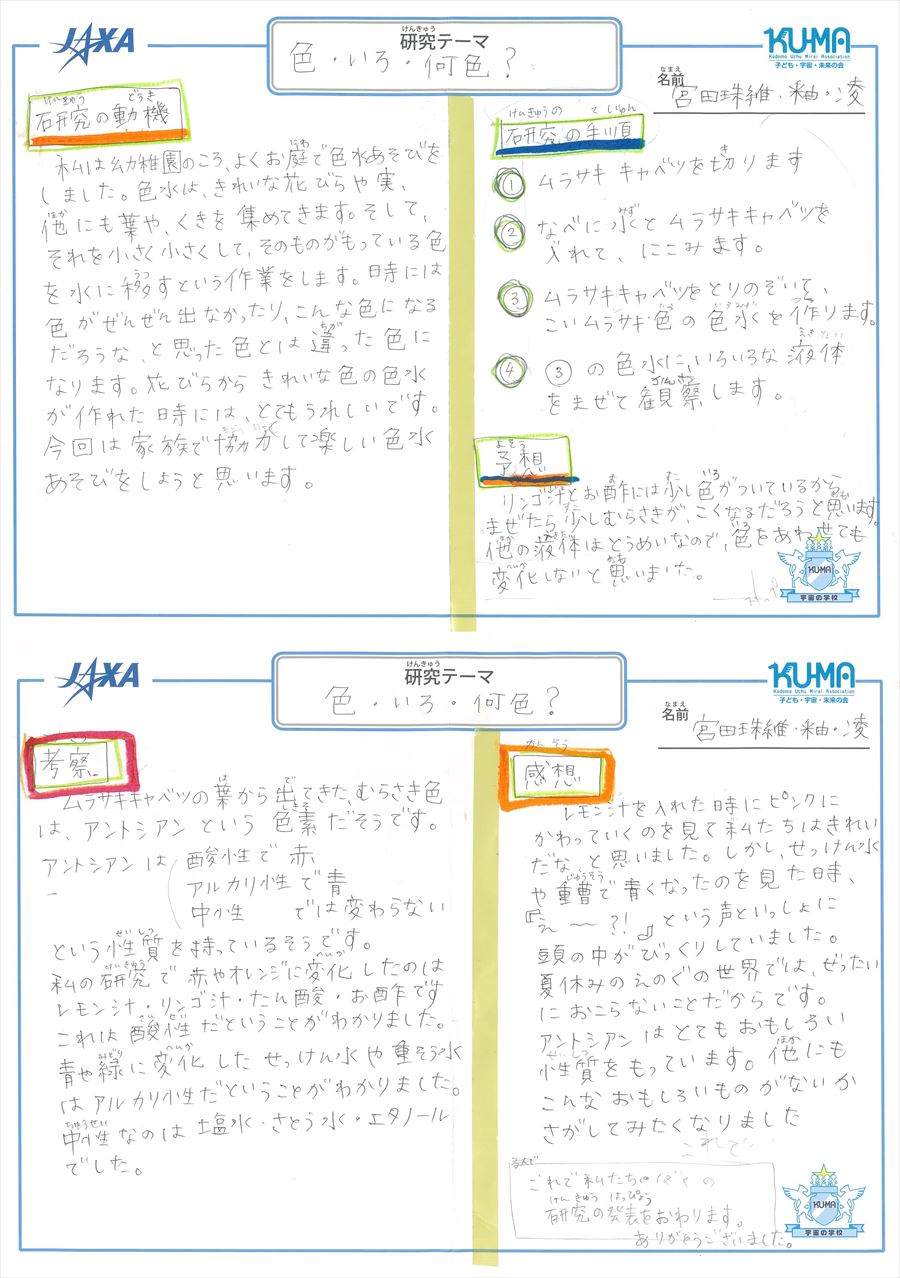 JAXA
けんきゅう
研究テーマ
色・いろ・何色？
KU-MA
Kodomo Uchu Mirai Association
子ども・宇宙・未来の会
なまえ
名前 宮田珠維・釉・凌
けんきゅう どうき
研究の動機
私は幼稚園のころ、よくお庭で色水あそびを
しました。色水は、きれいな花びらや実、
他にも葉や、くきを集めてきます。そして、
それを小さく小さくして、そのものがもっている色
を水に移すという作業をします。時には
色がぜんぜん出なかったり、こんな色になる
だろうな、と思った色とは違った色に
なります。花びらからきれいな色の色水
が作れた時には、とてもうれしいです。
今回は家族で協力して楽しい色水
あそびをしようと思います。
けんきゅうの てじゅん
研究の手順
① ムラサキキャベツを切ります
② なべに水とムラサキキャベツを
入れて、にこみます。
③ ムラサキキャベツをとりのぞいて、
こいムラサキ色の色水を作ります。
④ ③の色水に、いろいろな液体
をまぜて観察します。
よそう
予想
リンゴ汁とお酢には少し色がついているから
まぜたら少しむらさきが、こくなるだろうと思います。
他の液体はとうめいなので、色をあわせても
変化しないと思いました。
KUMA
宇宙の学校
JAXA
けんきゅう
研究テーマ
色・いろ・何色？
KU-MA
Kodomo Uchu Mirai Association
子ども・宇宙・未来の会
なまえ
名前 宮田珠維・釉・凌
考察
ムラサキキャベツの葉から出てきた、むらさき色
は、アントシアンという色素だそうです。
アントシアンは 酸性で赤
アルカリ性で青
中性 では変わらない
という性質を持っているそうです。
私の研究で赤やオレンジに変化したのは
レモン汁・リンゴ汁・たん酸・お酢です
これは酸性だということがわかりました。
青や緑に変化したせっけん水や重そう水
はアルカリ性だということがわかりました。
中性なのは塩水・さとう水・エタノール
でした。
かんそう
感想
レモン汁を入れた時にピンクに
かわっていくのを見て私たちはきれい
だな、と思いました。しかし、せっけん水
や重曹で青くなったのを見た時、
『え〜?!』という声といっしょに
頭の中がびっくりしていました。
夏休みのえのぐの世界では、ぜったい
におこらないことだからです。
アントシアンはとてもおもしろい
性質をもっています。他にも
こんなおもしろいものがないか
さがしてみたくなりました
これで
これで私たちの
けんきゅう はっぴょう
研究の発表をおわります。
ありがとうございました。
KUMA
宇宙の学校